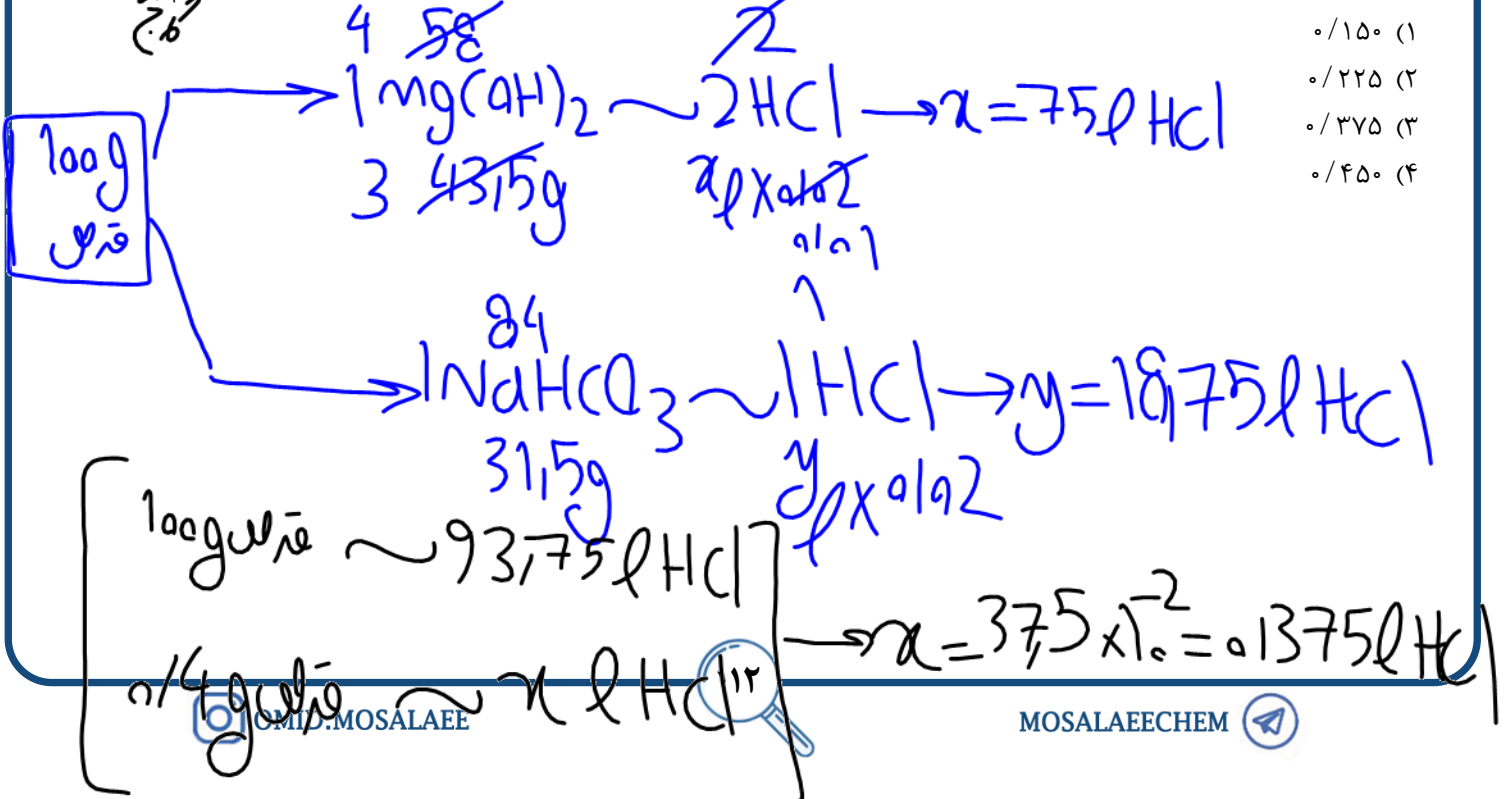 ۱) ۰/۱۵۰
۲) ۰/۲۲۵
۳) ۰/۳۷۵
۴) ۰/۴۵۰
4 58 2
1 Mg(OH)2 ~ 2HCl → x = 75 l HCl
3 43,5g x l × 0/02
0/01
1
100g
قرص
84
1NaHCO3 ~ 1HCl → y = 18,75 l HCl
31,5g y l × 0/02
100g قرص ~ 93,75 l HCl
0/4g قرص ~ x l HCl
→ x = 37,5 × 10^-2 = 0/375 l HCl
۱۲
OMID.MOSALAEE
MOSALAEECHEM